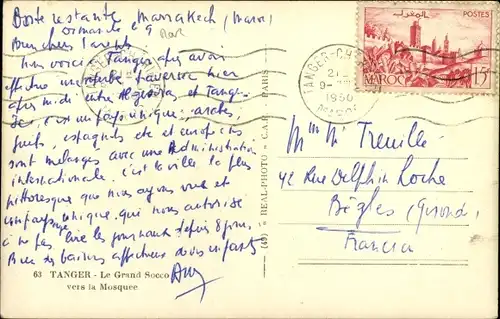 Poste restante, Marrakech (Maroc)
dimanche 9
Bien chers
Nous voici à Tanger après avoir
effectué une superbe traversée hier
après midi entre Algésiras et Tanger
Ici, c'est un pays unique : arabes,
juifs, espagnols etc et européens
sont mélangés avec une Administration
internationale. c'est la ville la plus
pittoresque que nous ayons vue et
un paysage unique, qui nous autorise
à ne pas lire les journaux depuis 8 jours
Bien des baisers affectueux de vos enfants
63 TANGER - Le Grand Socco
vers la Mosquee
(49) = REAL-PHOTO = C.A.P. PARIS
TANGER-CH
21
1950
MAROC
POSTES
MAROC
15F
Mr Treuille
42 Rue Delphin Loche
Bègles (Gironde)
Francia